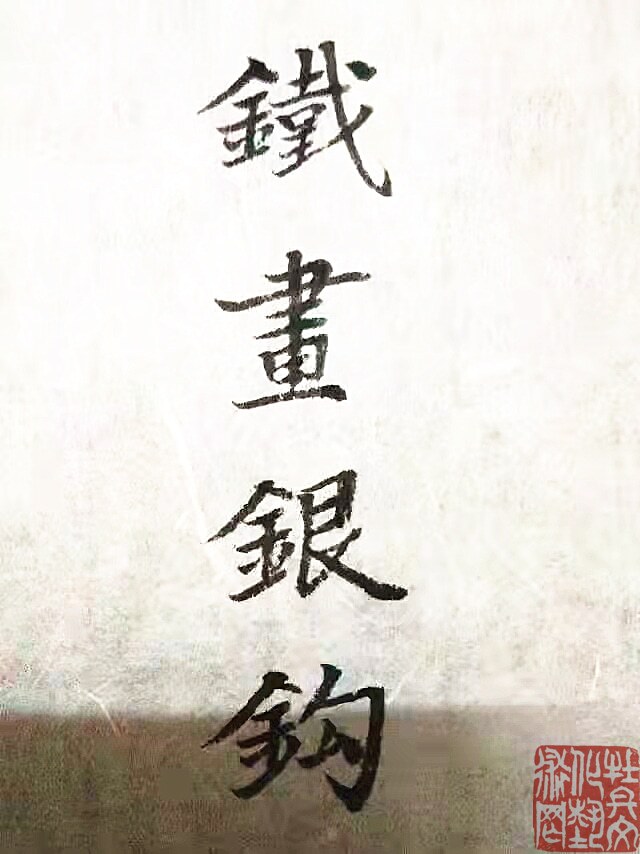 鐵畫銀鈎